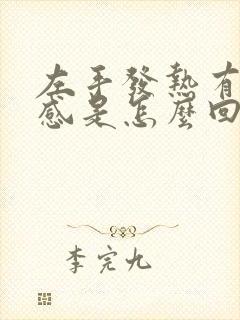 左手發熱有
感是怎麼回
李完九